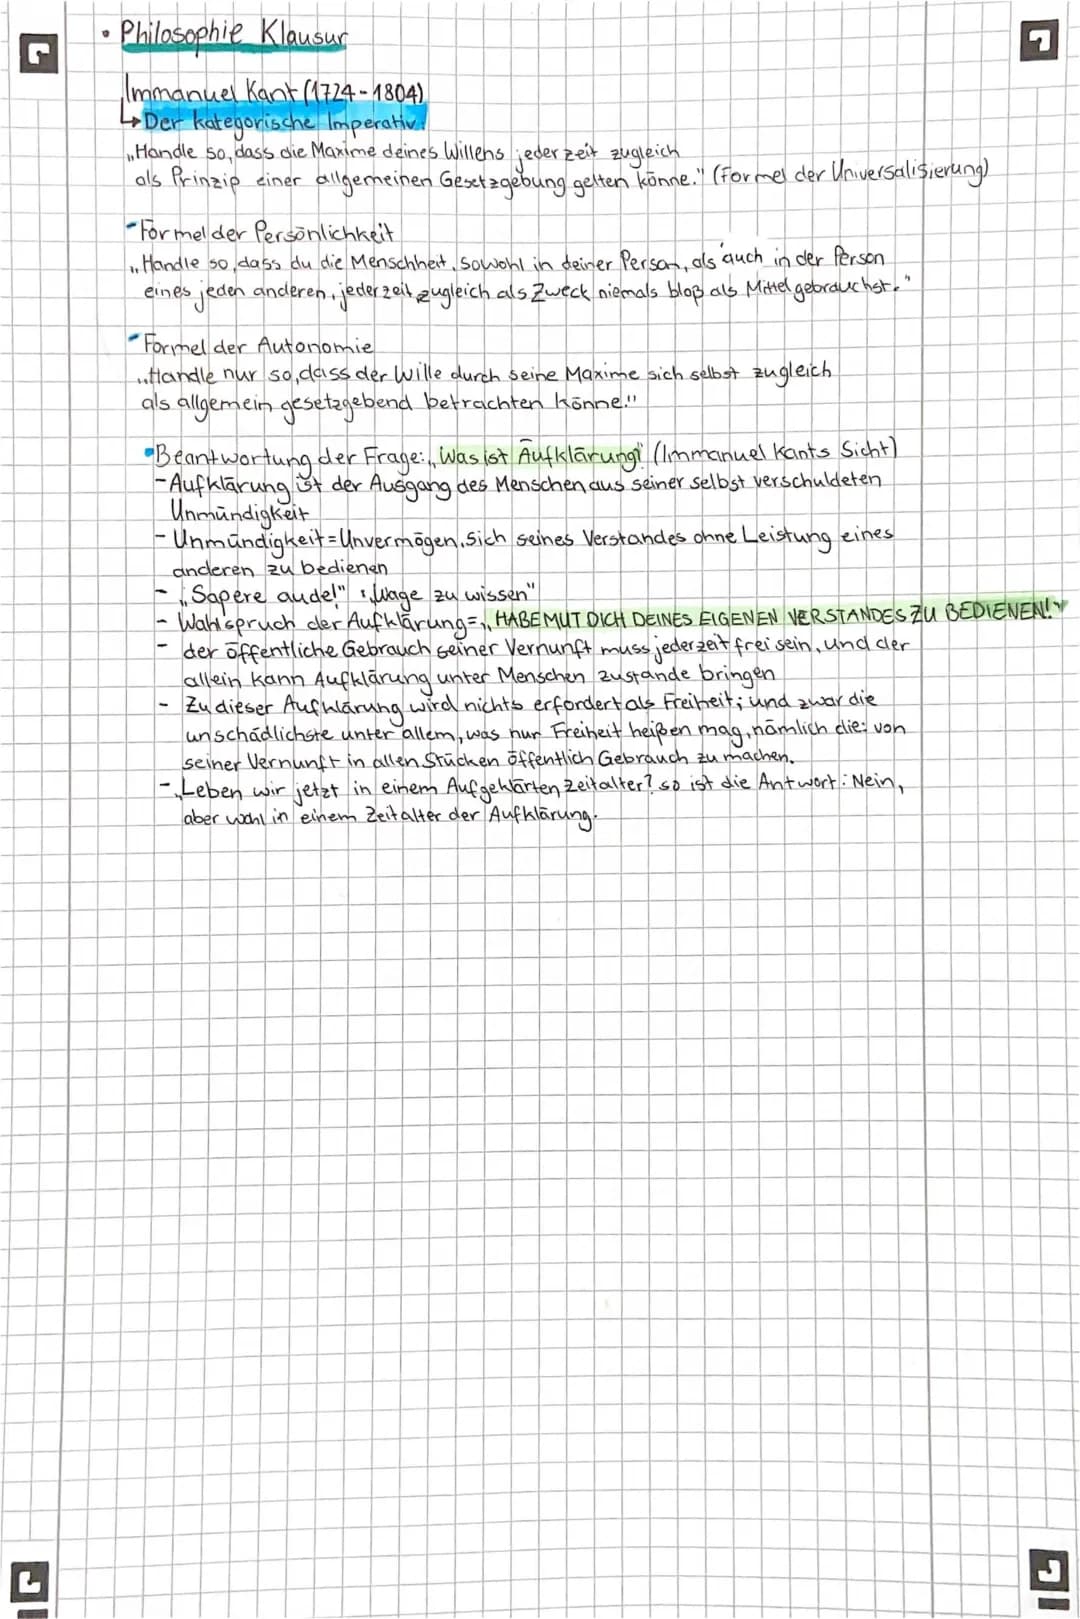 • Philosophie Klausur
Immanuel Kant (1724-1804)
↳ Der kategorische Imperativ:
„Handle so, dass die Maxime deines Willens jederzeit zugleich
als Prinzip einer allgemeinen Gesetzgebung gelten könne." (Formel der Universalisierung)
- Formel der Persönlichkeit
„Handle so, dass du die Menschheit, sowohl in deiner Person, als auch in der Person
eines jeden anderen, jederzeit zugleich als Zweck niemals bloß als Mittel gebrauchst."
- Formel der Autonomie
„Handle nur so, dass der Wille durch seine Maxime sich selbst zugleich
als allgemein gesetzgebend betrachten könne."
• Beantwortung der Frage: „Was ist Aufklärung?" (Immanuel Kants Sicht)
- Aufklärung ist der Ausgang des Menschen aus seiner selbst verschuldeten
Unmündigkeit
- Unmündigkeit = Unvermögen, sich seines Verstandes ohne Leistung eines
anderen zu bedienen
- „Sapere aude!" : „Wage zu wissen"
- Wahlspruch der Aufklärung = „HABE MUT DICH DEINES EIGENEN VERSTANDES ZU BEDIENEN!"
- der öffentliche Gebrauch seiner Vernunft muss jederzeit frei sein, und der
allein kann Aufklärung unter Menschen zustande bringen
- Zu dieser Aufklärung wird nichts erfordert als Freiheit; und zwar die
unschädlichste unter allem, was nur Freiheit heißen mag, nämlich die: von
seiner Vernunft in allen Stücken öffentlich Gebrauch zu machen.
- „Leben wir jetzt in einem Aufgeklärten Zeitalter? so ist die Antwort: Nein,
aber wohl in einem Zeitalter der Aufklärung.